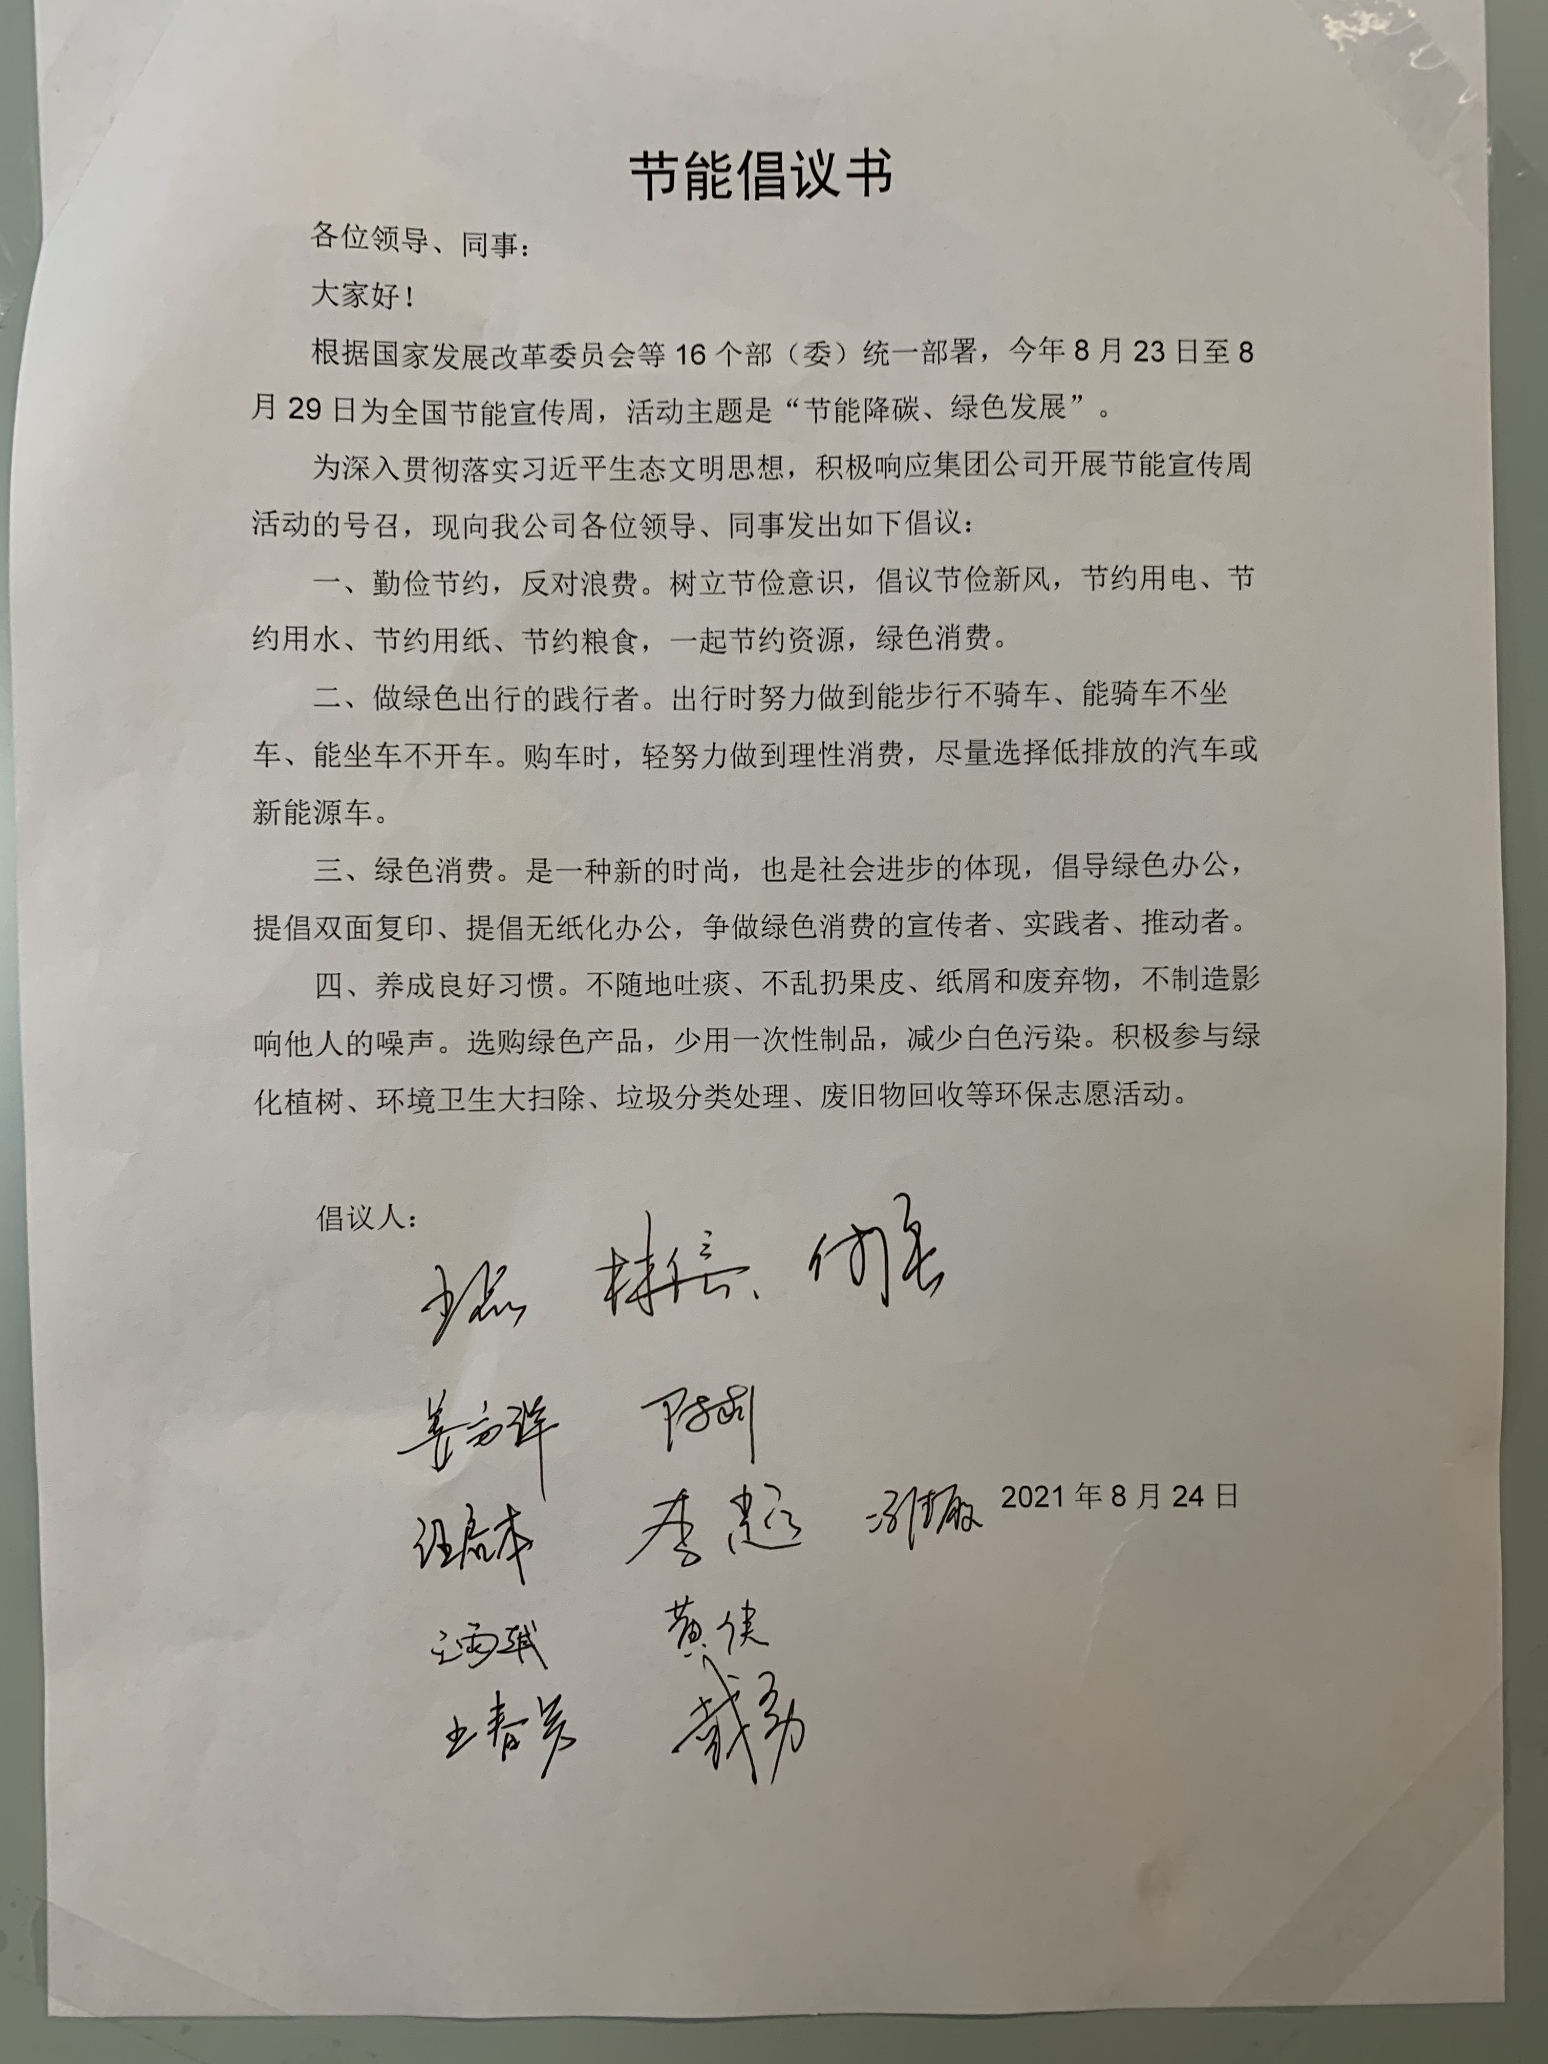 节能倡议书
各位领导、同事：
大家好！
根据国家发展改革委员会等 16 个部（委）统一部署，今年 8 月 23 日至 8
月 29 日为全国节能宣传周，活动主题是“节能降碳、绿色发展”。
为深入贯彻落实习近平生态文明思想，积极响应集团公司开展节能宣传周
活动的号召，现向我公司各位领导、同事发出如下倡议：
一、勤俭节约，反对浪费。树立节俭意识，倡议节俭新风，节约用电、节
约用水、节约用纸、节约粮食，一起节约资源，绿色消费。
二、做绿色出行的践行者。出行时努力做到能步行不骑车、能骑车不坐
车、能坐车不开车。购车时，轻努力做到理性消费，尽量选择低排放的汽车或
新能源车。
三、绿色消费。是一种新的时尚，也是社会进步的体现，倡导绿色办公，
提倡双面复印、提倡无纸化办公，争做绿色消费的宣传者、实践者、推动者。
四、养成良好习惯。不随地吐痰、不乱扔果皮、纸屑和废弃物，不制造影
响他人的噪声。选购绿色产品，少用一次性制品，减少白色污染。积极参与绿
化植树、环境卫生大扫除、垃圾分类处理、废旧物回收等环保志愿活动。
倡议人：
王磊
李超 2021 年 8 月 24 日
黄健
戴勇